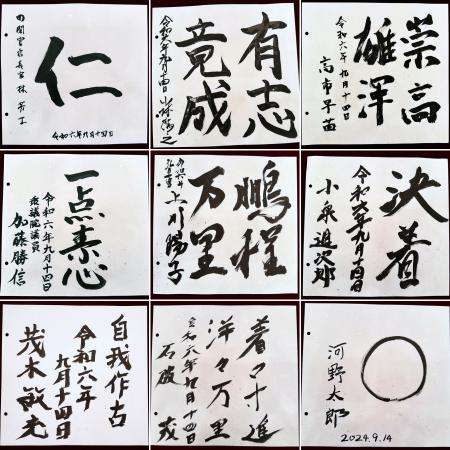 仁
内閣官房長官 林 芳正
令和六年九月十四日
有志
竟成
令和六年九月十四日 小林鷹之
崇高
雄渾
令和六年九月十四日
高市早苗
一点素心
令和六年九月十四日
衆議院議員
加藤勝信
鵬程
万里
上川陽子
決着
令和六年九月十四日
小泉進次郎
自我作古
令和六年
九月十四日
茂木敏充
着々寸進
洋々万里
令和六年九月十四日
石破 茂
河野太郎
2024.9.14